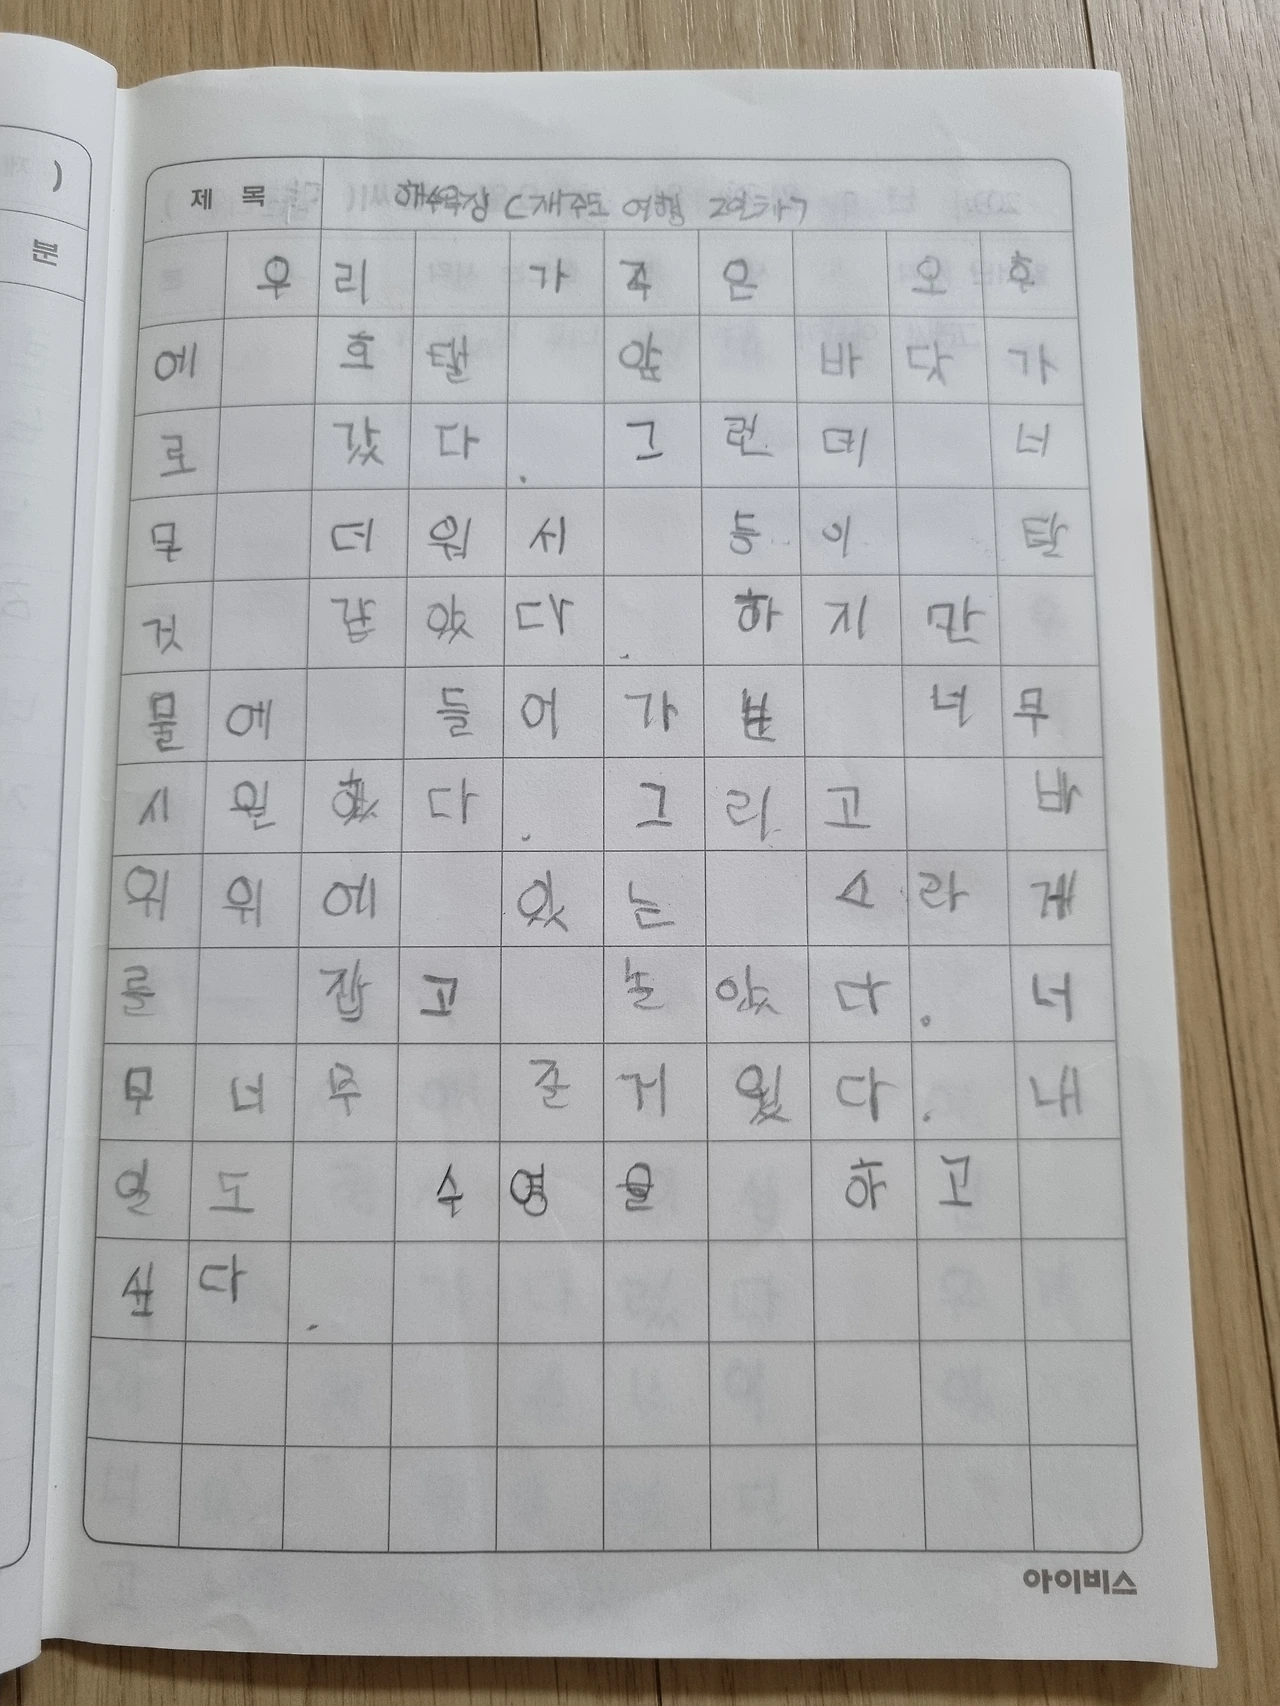 )
분
제 목 해수욕장 (재주도 여행 2일차)
우리 가족은 오후
에 호텔 앞 바닷가
로 갔다. 그런데 너
무 더워서 등이 탈
것 같았다. 하지만
물에 너무
시원했다. 그리고 바
위위에 있는 소라게
를 잡고 놀았다. 너
무너무 즐거웠다. 내
일도 수영을 하고
싶다.
아이비스